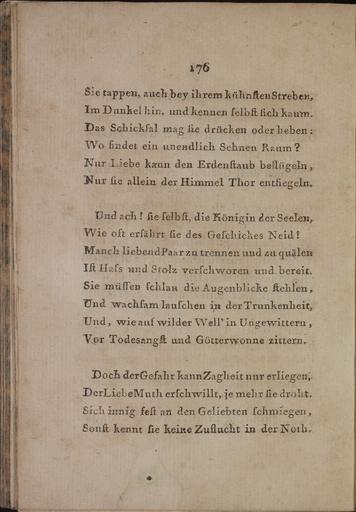 176
Sie tappen, auch bey ihrem kühnſten Streben,
Im Dunkel hin, und kennen ſelbſt ſich kaum.
Das Schickſal mag ſie drücken oder heben:
Wo findet ein unendlich Sehnen Raum?
Nur Liebe kann den Erdenſtaub beflügeln,
Nur ſie allein der Himmel Thor entſiegeln.
Und ach! ſie ſelbſt, die Königin der Seelen,
Wie oft erfährt ſie des Geſchickes Neid!
Manch liebend Paar zu trennen und zu quälen
Iſt Haſs und Stolz verſchworen und bereit.
Sie müſſen ſchlau die Augenblicke ſtehlen,
Und wachſam lauſchen in der Trunkenheit,
Und, wie auf wilder Well' in Ungewittern,
Vor Todesangſt und Götterwonne zittern.
Doch der Gefahr kann Zagheit nur erliegen,
Der Liebe Muth erſchwillt, je mehr ſie droht.
Sich innig feſt an den Geliebten ſchmiegen,
Sonſt kennt ſie keine Zuflucht in der Noth.